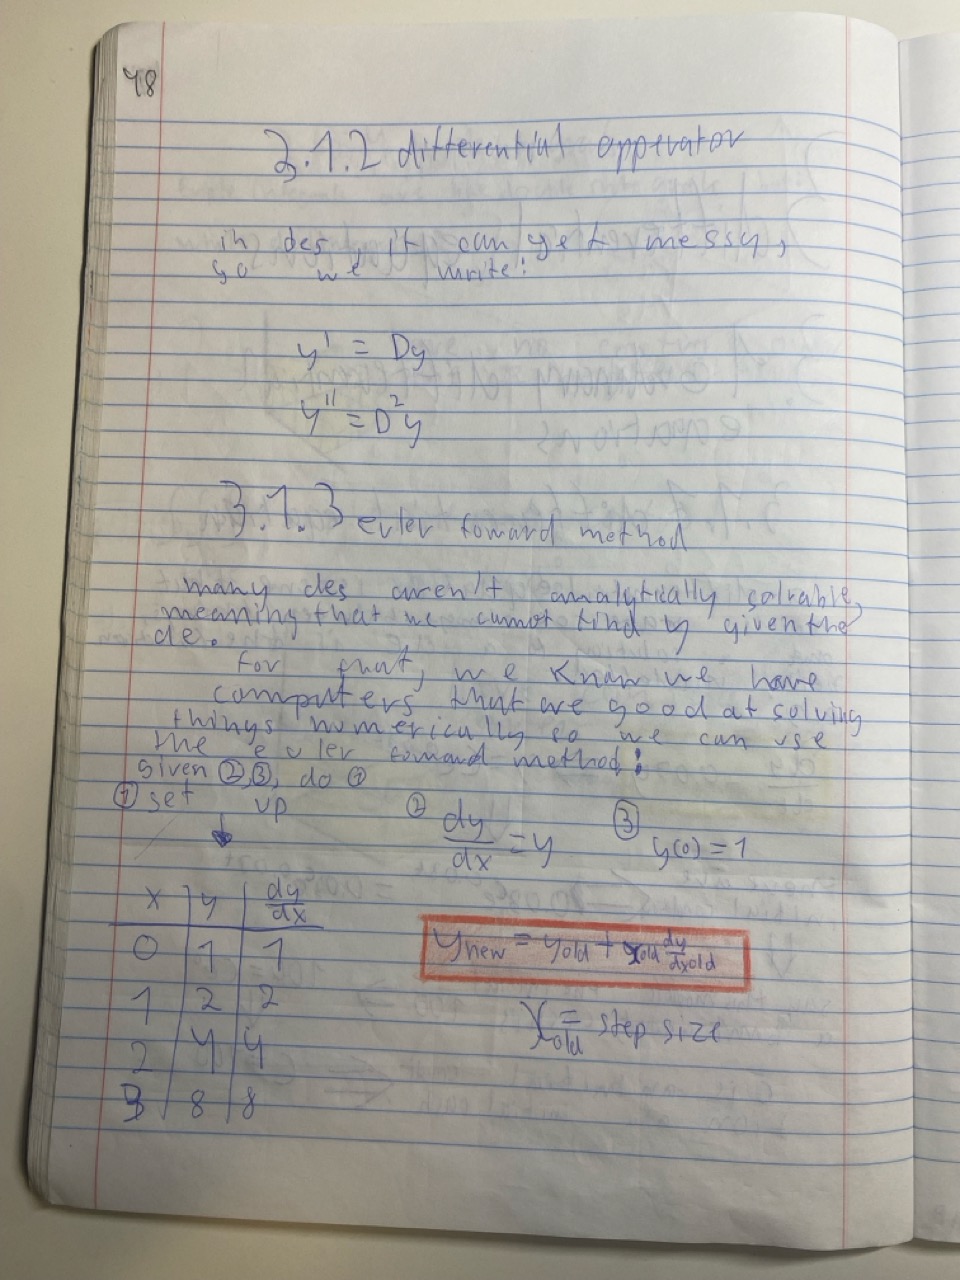 48
3.1.2 differential opperator
in des, it can get messy,
so we write:
y' = Dy
y'' = D²y
3.1.3 euler foward method
many des aren't analytically solvable,
meaning that we cannot find y given the
de.
For that, we know we have
computers that are good at solving
things numerically so we can use
the euler foward method:
given ②,③, do ①
① set up ② dy/dx = y ③ y(0) = 1
x y dy/dx
0 1 1
1 2 2
2 4 4
3 8 8
y new = y old + x old dy/dx old
x old = step size